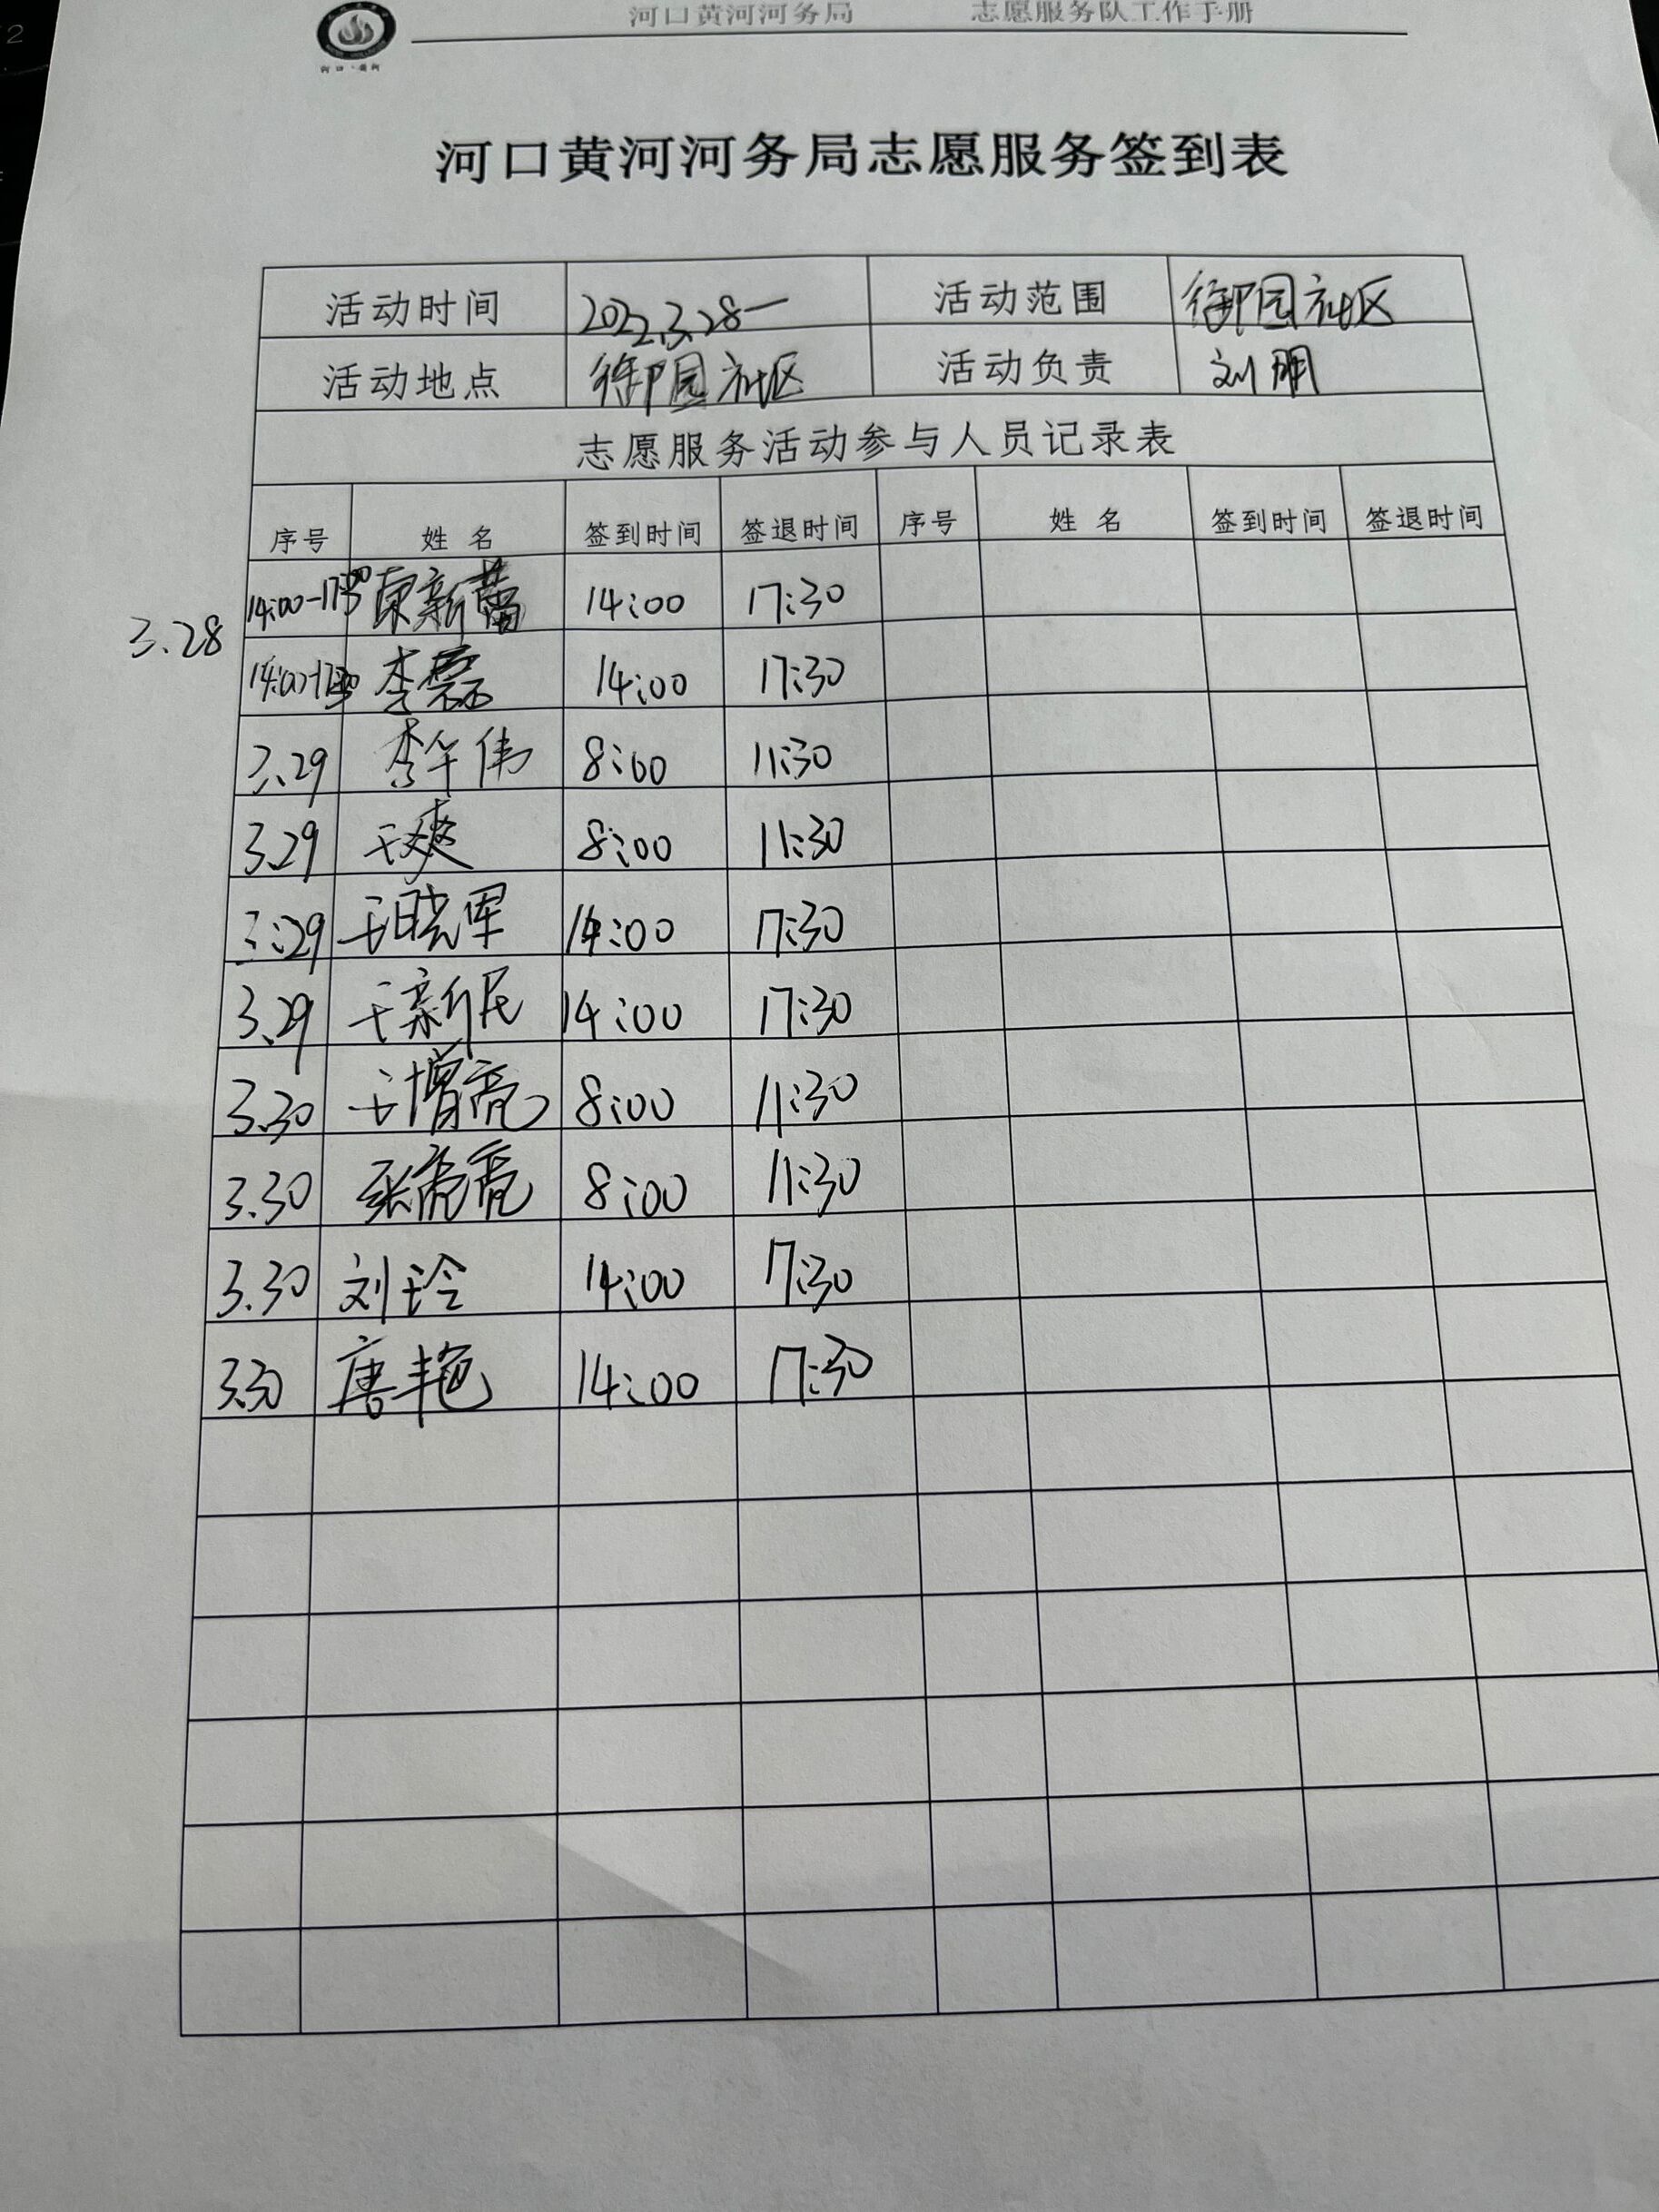 河口黄河河务局 志愿服务队工作手册
河口·黄河
河口黄河河务局志愿服务签到表
活动时间 2022.3.28一 活动范围 御园社区
活动地点 御园社区 活动负责 刘明
志愿服务活动参与人员记录表
序号 姓 名 签到时间 签退时间 序号 姓 名 签到时间 签退时间
3.28 14:00-17:30 新蕾 14:00 17:30
14:00-17:30 李磊 14:00 17:30
3.29 李华伟 8:00 11:30
3.29 王爽 8:00 11:30
3:29 王晓军 14:00 17:30
3.29 王新民 14:00 17:30
3.30 王增亮 8:00 11:30
3.30 张亮亮 8:00 11:30
3.30 刘玲 14:00 17:30
3.30 唐艳 14:00 17:30